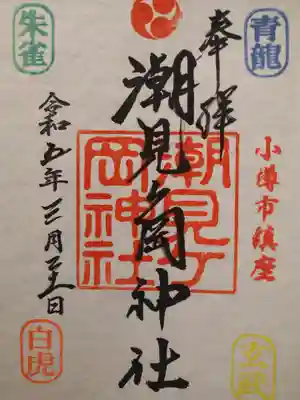 青龍
奉拝
小樽市鎮座
潮見ヶ岡神社
潮見ヶ
岡神社
朱雀
令和五年三月二十一日
白虎
玄武